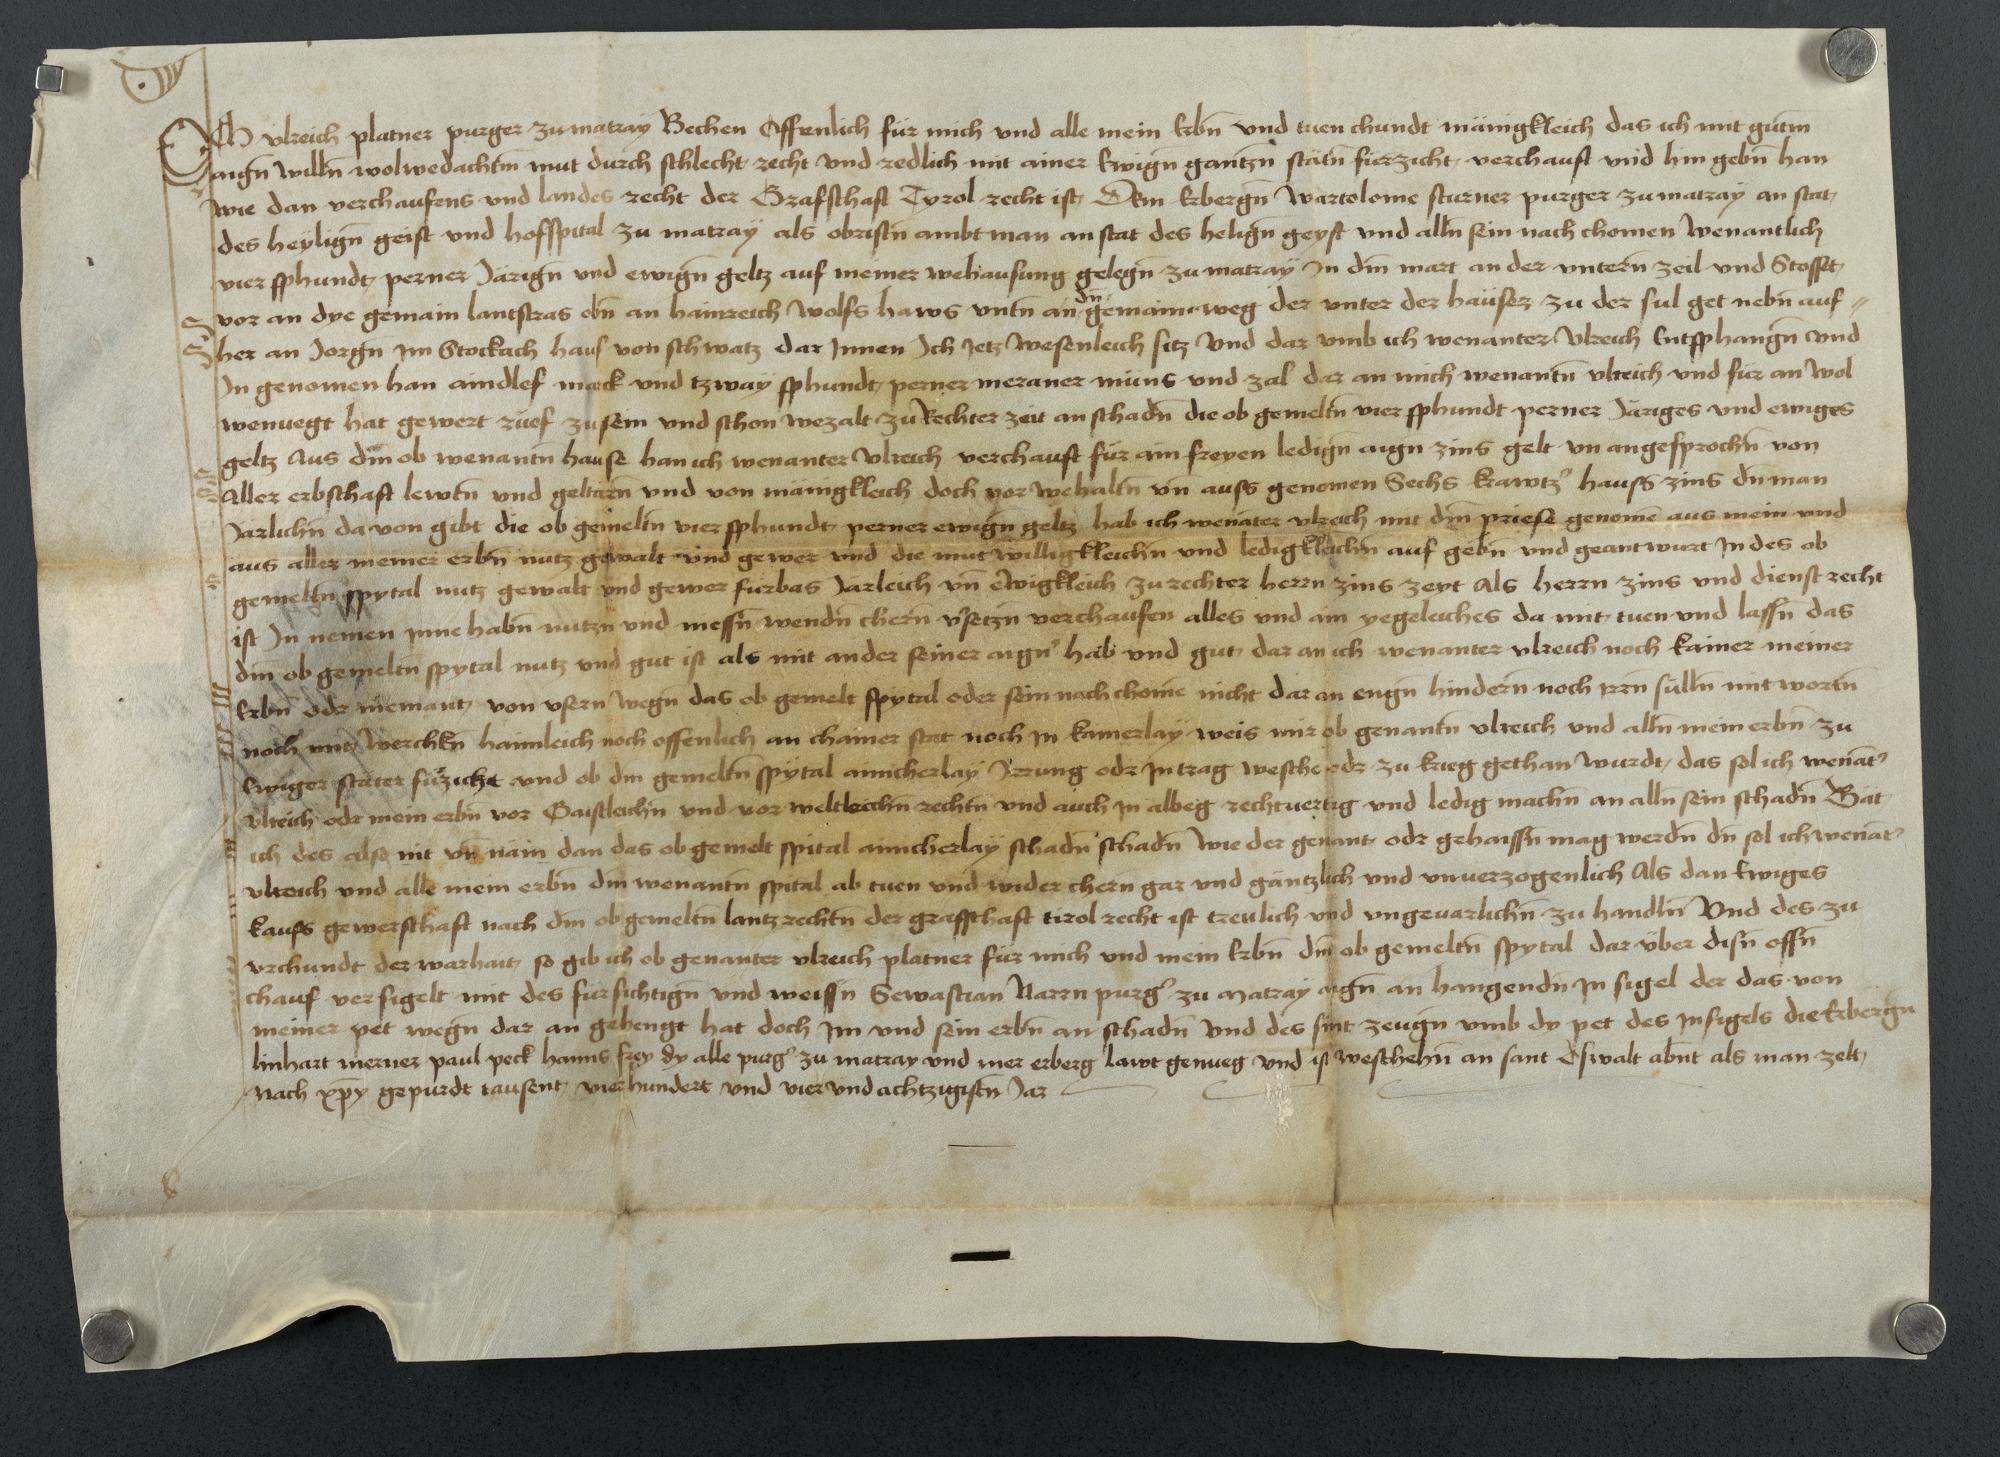 Ich Ulreich platner purger zu matray Bechen Offenlich für mich und alle mein Erbn̄ und tuen chundt mänigkleich das ich mit gutm
aign̄ willn̄ wolwedachtm̄ mut durch schlecht recht und redlich mit ainer Ewign̄ gantzn̄ stätn̄ fürzicht verchauft und hin gebn̄ han
wie dan verchaufens und landes recht der Grafschaft Tyrol recht ist Dem Erbergn̄ Wartolome sturner purger zu matraÿ an stat
des heÿlign̄ geist und hofspital zu matraÿ als obristn̄ ambtman an stat des helign̄ geyst und alln̄ sein nach chomen Wenantlich
vier phundt perner Järign̄ und ewign̄ geltz auf meiner wehausung gelegn̄ zu matraÿ In dm̄ mart an der untern̄ zeil und Stosset
vor an dye gemain lantstras obn̄ an hainreich Wolfs haws untn̄ an dn̄ gemain weg der unter der haüser zu der sul get nebn̄ auf
her an Jorgn̄ im Stockach haus von schwatz dar Innen Ich Jetz Wesenleich sitz Und dar umb ich wenanter Ulreich Entphangn̄ und
In genomen han aindlef marck und tzwaÿ phundt perner meraner müns und zal dar an mich wenantn̄ ulreich und für an wol
wenuegt hat gewert rüef zu sein und schon wezalt zu Rechter zeit an schadn̄ die ob gemeltn̄ vier phundt perner Järiges und ewiges
geltz Aus dm̄ ob wenantn̄ hause han ich wenanter Ulreich verchauft für ain freyen ledign̄ aign zins gelt un angesprochn̄ von
Aller erbschaft lewtn̄ und geltärn̄ und von mänigkleich doch vor wehaltn̄ un̄ auss genomen Sechs krawtzʾ hauss zins dn̄ man
Jarlichn̄ da von gibt die ob gemeltn̄ vier phundt perner ewign̄ geltz hab ich wenāter ulreich mit dm̄ priefe genomē aus mein und
aus aller meiner erbn̄ nutz gewalt und gewer und die mutwilligkleichn̄ und ledigkleichn̄ auf gebn̄ und geantwurt In des ob
gemeltn̄ spytal nutz gewalt und gewer furbas Jarleich un̄ Ewigkleich zu rechter herrn zins zeyt Als herrn zins und dienst recht
ist In nemen inne habn̄ nutzn̄ und nessn̄ wendn̄ chern̄ vʾsetzn̄ verchaufen alles und ain yegeleiches da mit tuen und lassn̄ das
dm̄ ob gemeltn̄ spytal nutz und gut ist als mit ander seiner aignʾ hab und gut dar an ich wenanter ulreich noch kainer meiner
Erbn̄ odr niemant von unsern wegn̄ das ob gemelt spytal oder sein nach chomē nicht dar an engn̄ hindern̄ noch irrn sulln̄ mit wortn̄
noch mit werchkn̄ haimleich noch offenlich an chainer stat noch in kainerlaÿ weis mir ob genantn̄ ulreich und alln̄ mein erbn̄ zu
Ewiger stäter fürzicht und ob dm̄ gemeltn̄ spÿtal ainicherlaÿ Irrung odr Intrag wesche odr zu krieg gethan wurdt das sol ich wenātʾ
Ulreich odr mein erbn̄ vor Gaistleichn̄ und vor weltleichn̄ rechtn̄ und auch in albeg rechtvertig und ledig machn̄ an alln̄ sein schadn̄ Tät
ich des also nit un̄ näm dan das ob gemelt spital ainicherlaÿ schadn̄ schadn̄ wie der genant odr gehaissn̄ mag werdn̄ dn̄ sol ich wenātʾ
Ulreich und alle mein erbn̄ dm̄ wenantn̄ spital ab tuen und wider chern̄ gar und gäntzlich und unverzogenlich Als dan Ewiges
kaufs gewerschaft nach dm̄ ob gemeltn̄ lantz rechtn̄ der graffschaft tirol recht ist treulich und ungevarlichn̄ zu handln̄ Und des zu
urchundt der warhait so gib ich ob genanter ulreich platner für mich und mein Erbn̄ dm̄ ob gemeltn̄ spytal dar über disn̄ offn̄
chauf versigelt mit des fürsichtign̄ und weissn̄ Sewastian Narrn purgʾ zu matray aign̄ an hangendn̄ In sigel der das von
meiner pet wegn̄ dar an gehengt hat doch im und sein erbn̄ an schadn̄ Und des sint zeugn̄ umb dy pet des Insigels die Erbergn̄
linhart merner paul peck hanns frey dy alle purgʾ zu matray und mer erberg lawt genueg und ist weschehn̄ an sant Oswalt abn̄t als man zelt
nach xp̄y gepurdt tausent vierhundert und vier und achtzigistn̄ Jar